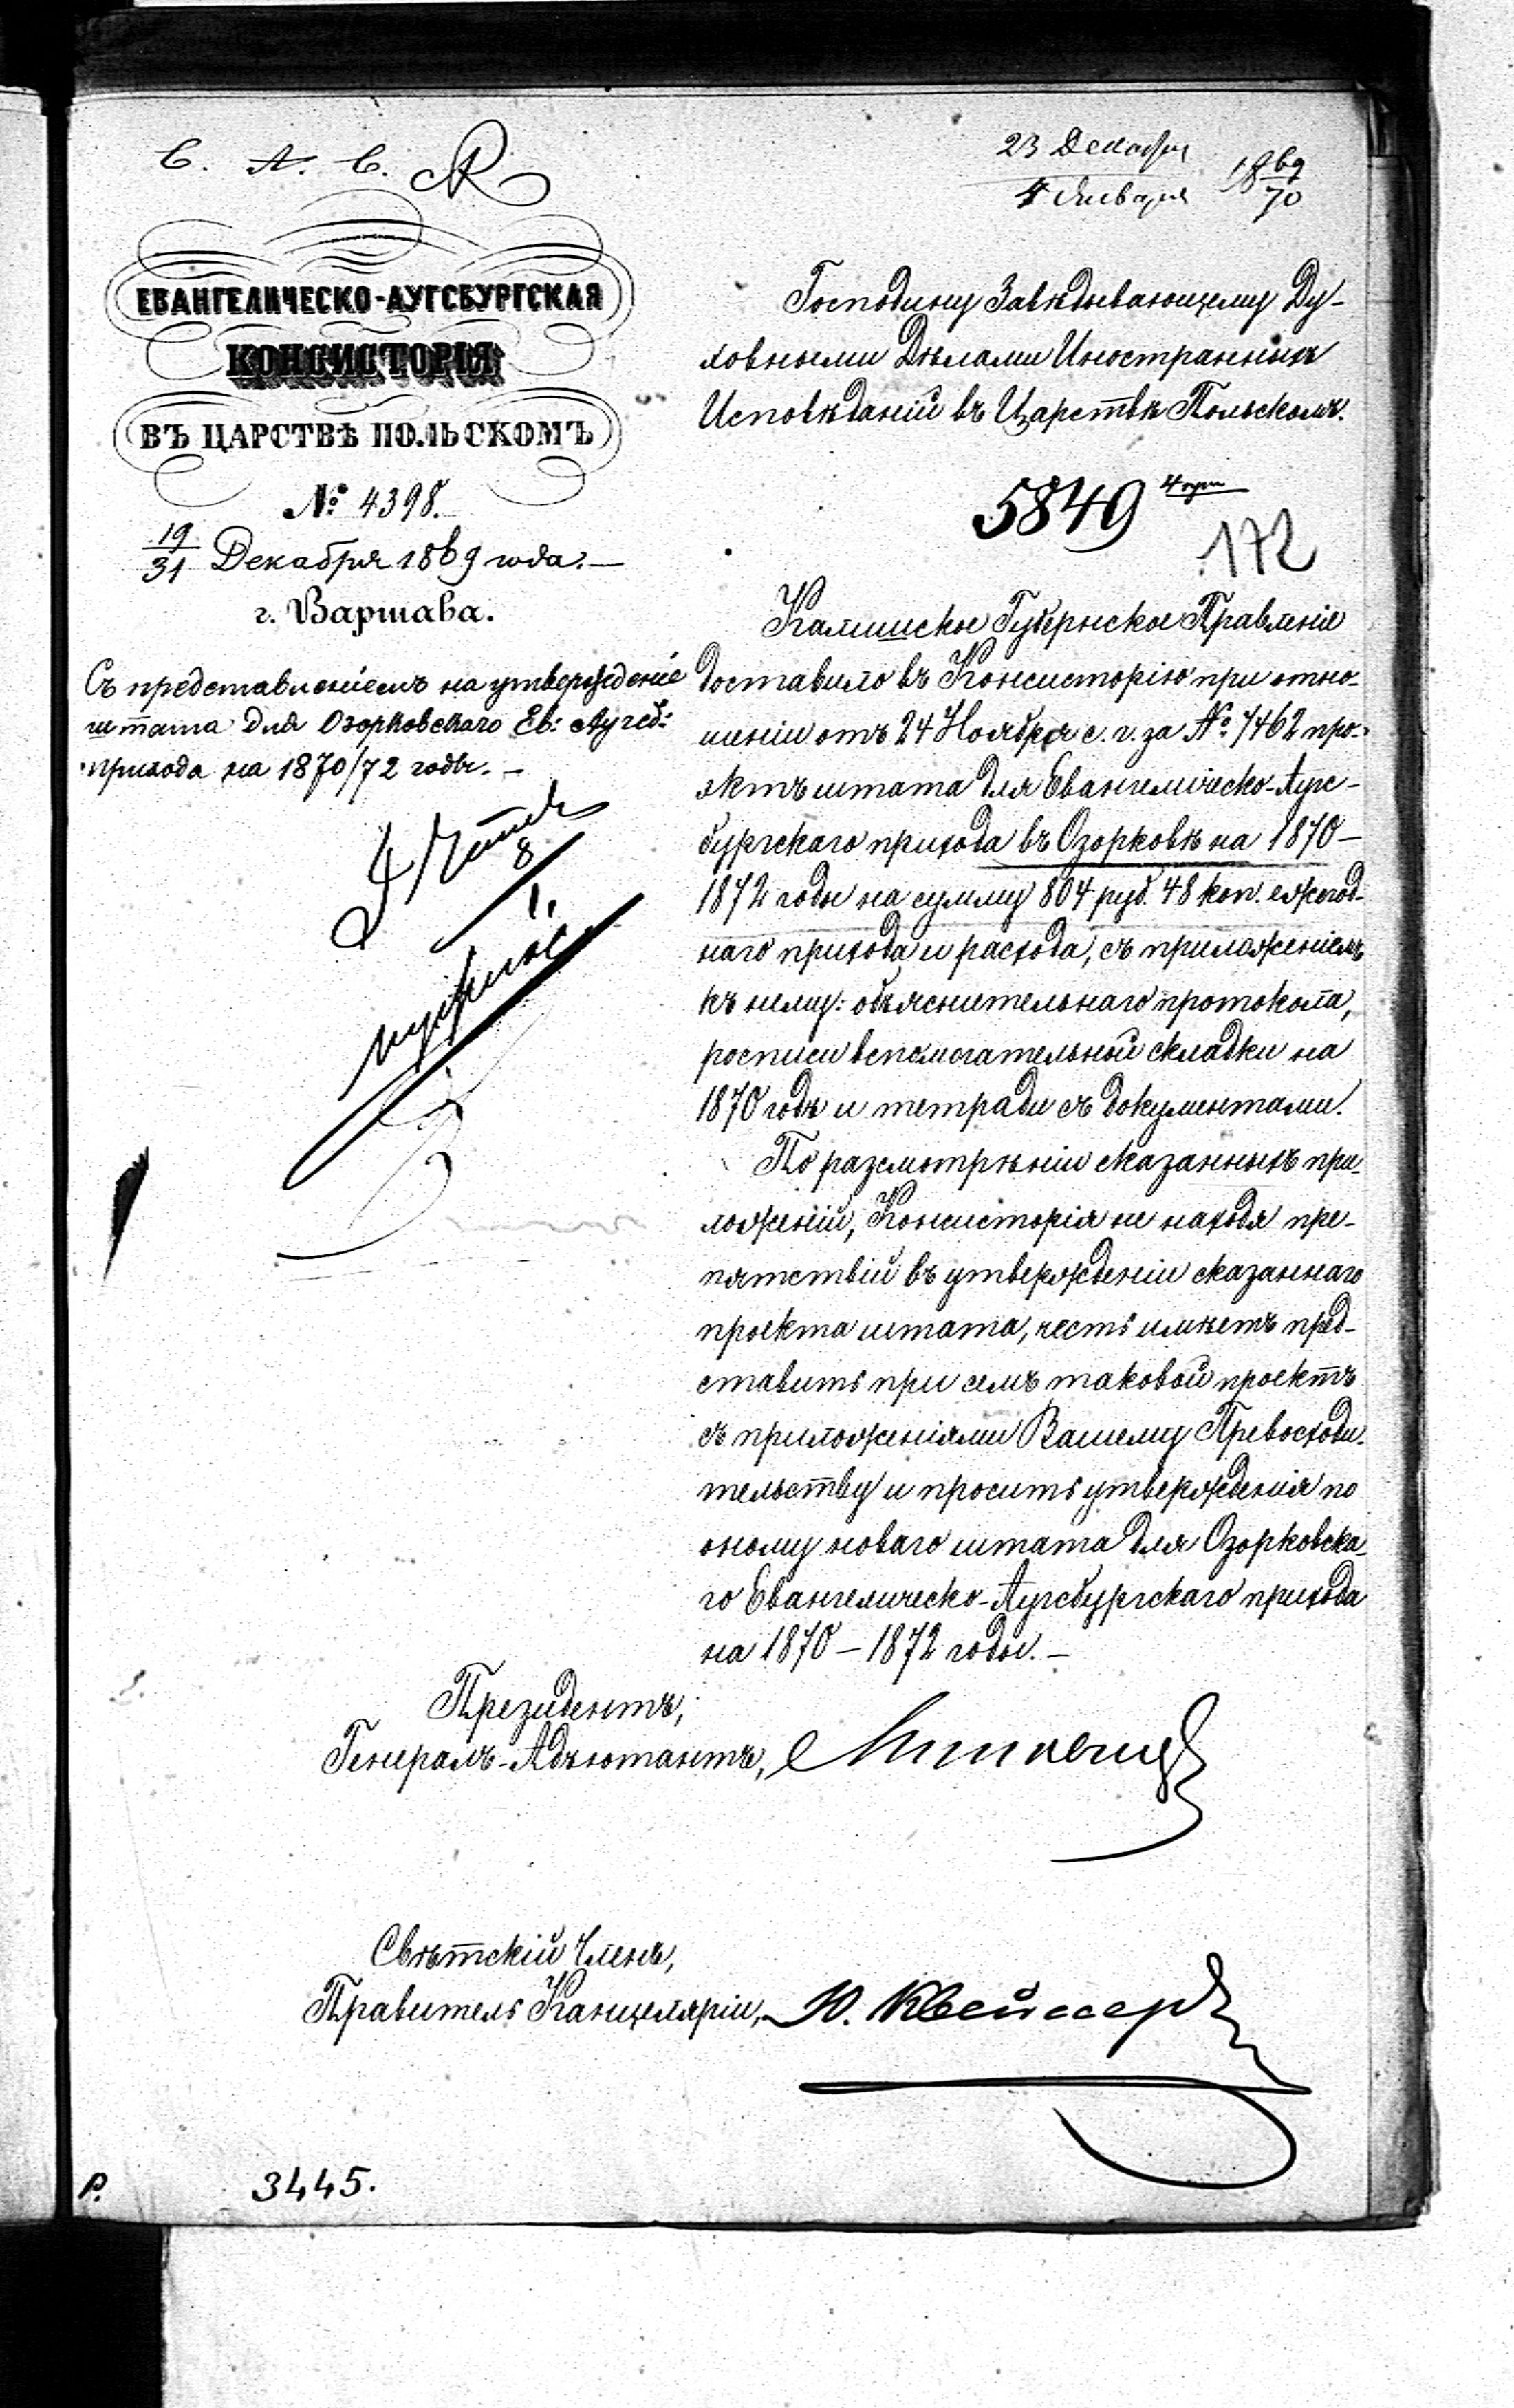 С. А. С.
23 Декабря
4 Января 18 69/70
ЕВАНГЕЛИЧЕСКО-АУГСБУРГСКАЯ
КОНСИСТОРІЯ
ВЪ ЦАРСТВѢ ПОЛЬСКОМЪ
№ 4398.
19/31 Декабря 1869 года.—
г. Варшава.
Съ представленіемъ на утвержденіе
штата для Озорковскаго Ев: Аугсб:
прихода на 1870/72 годы.—
8
1.
Господину Завѣдывающему Ду-
ховными Дѣлами Иностранныхъ
Исповѣданій въ Царствѣ Польскомъ.
5849
172
Калишское Губернское Правленіе
доставило въ Консисторію при отно-
шеніи отъ 24 Ноября с. г. за № 7462 про-
эктъ штата для Евангелическо-Аугс-
бургскаго прихода въ Озорковѣ на 1870-
1872 годы на сумму 804 руб. 48 коп. ежегод-
наго прихода и расхода, съ приложеніемъ
къ нему: объяснительнаго протокола,
росписи вспомогательной складки на
1870 годъ и тетради съ документами.
По разсмотрѣніи сказанныхъ при-
ложеній, Консисторія не находя пре-
пятствій въ утвержденіи сказаннаго
проекта штата, честь имѣетъ пред-
ставить при семъ таковой проектъ
съ приложеніями Вашему Превосходи-
тельству и просить утвержденія по
оному новаго штата для Озорковска-
го Евангелическо-Аугсбургскаго прихода
на 1870-1872 годы.—
Президентъ,
Генералъ-Адъютантъ,
Свѣтскій Членъ,
Правитель Канцеляріи, Ю. Квейссеръ
Р. 3445.